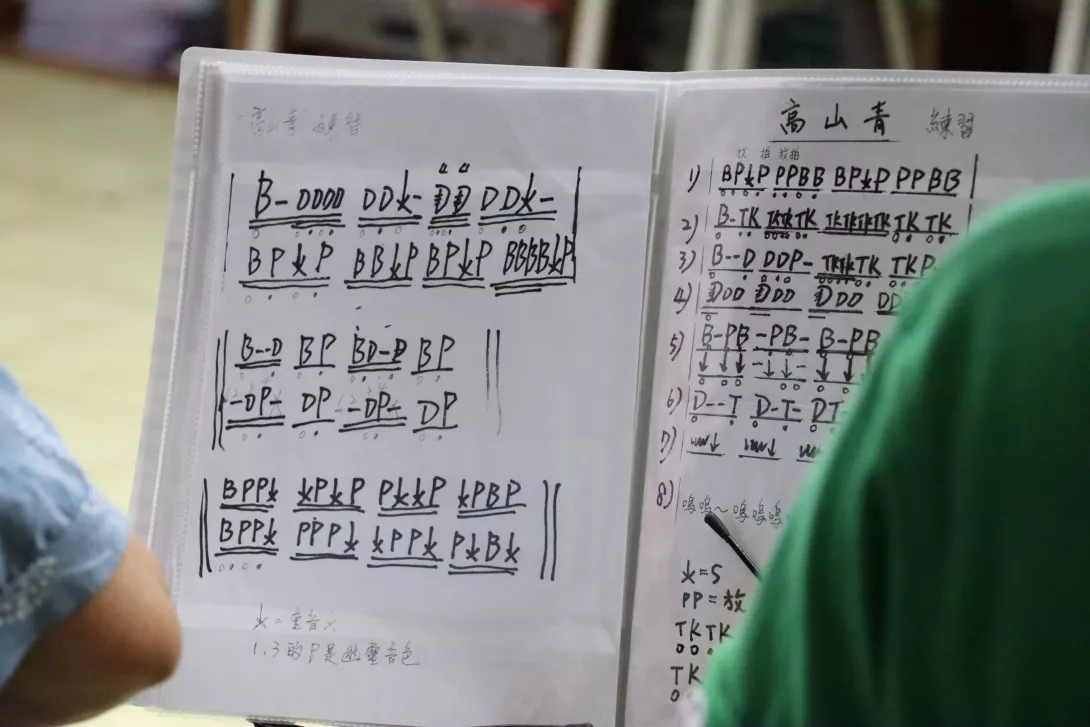 高山青 練習
B-DDDD DD⚹- DD DD⚹-
BP⚹P BB⚹P BP⚹P BBBB⚹P
B--D BP BD-D BP
-DP- DP -DP- DP
BPP⚹ ⚹P⚹P P⚹⚹P ⚹PBP
BPP⚹ PPP⚹ ⚹PP⚹ P⚹B⚹
⚹=重音
1.3的P是幽靈音色
高山青 練習
放 拍 放拍
1) BP⚹P PPBB BP⚹P PPBB
2) B-TK TKTK TKTKTKTK TKTK
3) B--D DDP- TKTKTK TKP
4) DDD DDD DDD DD
5) B-PB -PB- B-PB
6) D--T D-T- DT
7)
8) 嗚嗚~嗚嗚嗚
⚹=S
PP=放
TKTK
TK